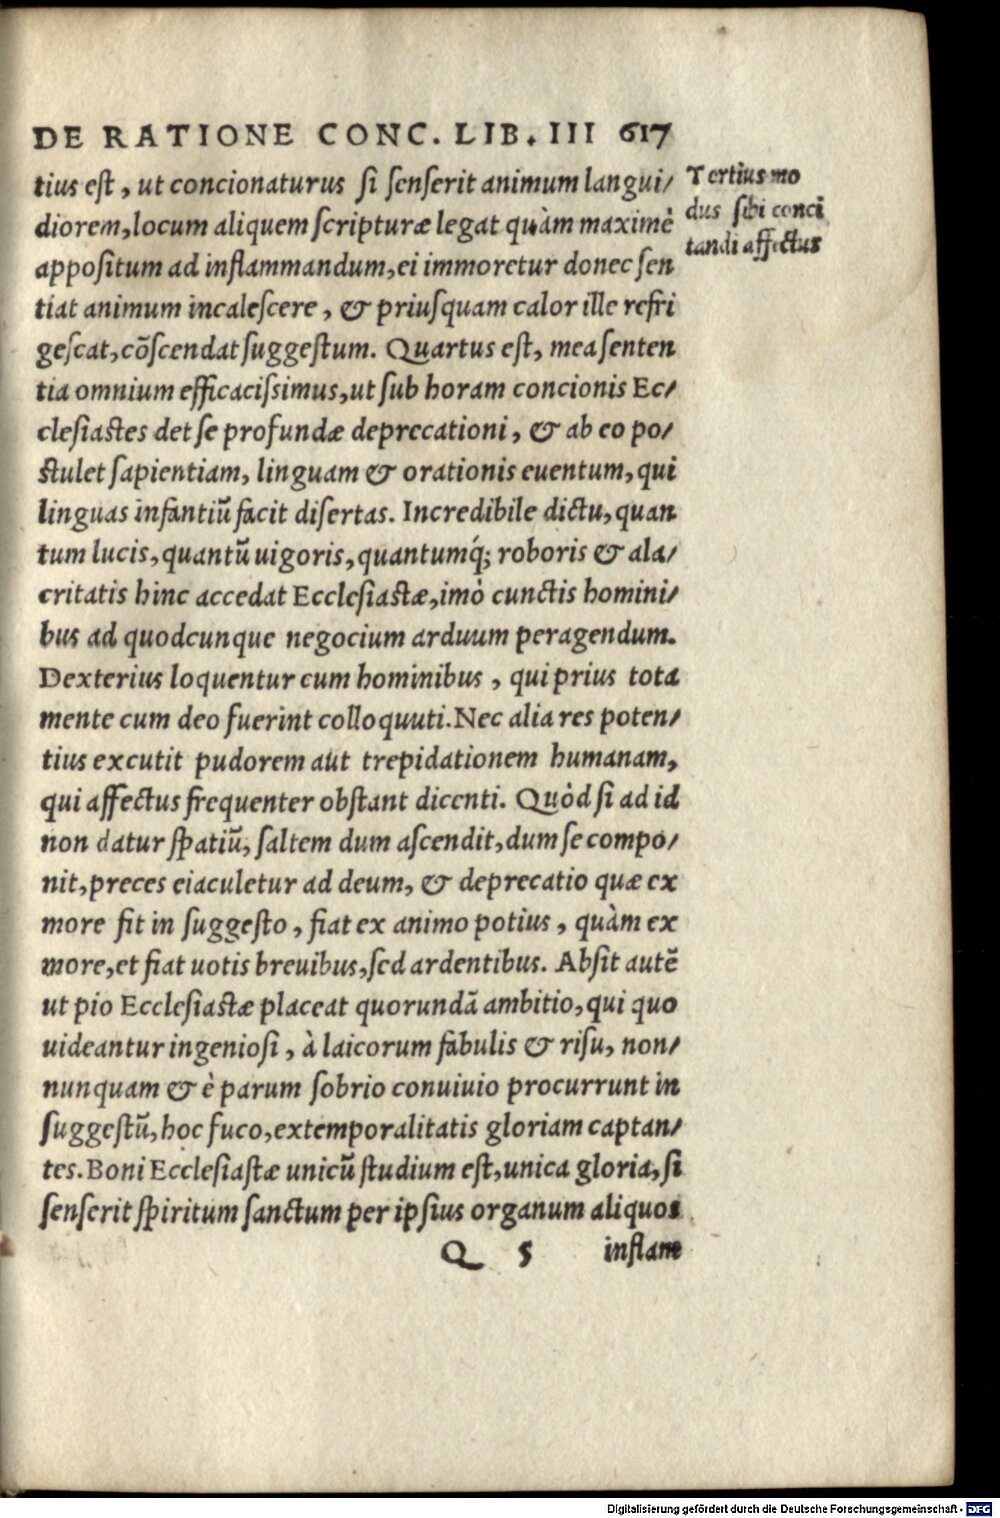 DE RATIONE CONC. LIB. III 617
tius est, ut concionaturus si senserit animum langui/
diorem, locum aliquem scripturæ legat quàm maximè
appositum ad inflammandum, ei immoretur donec sen
tiat animum incalescere, & priusquam calor ille refri
gescat, cõscendat suggestum. Quartus est, mea senten
tia omnium efficacissimus, ut sub horam concionis Ec/
clesiastes det se profundæ deprecationi, & ab eo po/
stulet sapientiam, linguam & orationis euentum, qui
linguas infantiũ facit disertas. Incredibile dictu, quan
tum lucis, quantũ uigoris, quantumq́; roboris & ala/
critatis hinc accedat Ecclesiastæ, imò cunctis homini/
bus ad quodcunque negocium arduum peragendum.
Dexterius loquentur cum hominibus, qui prius tota
mente cum deo fuerint colloquuti. Nec alia res poten/
tius excutit pudorem aut trepidationem humanam,
qui affectus frequenter obstant dicenti. Quòd si ad id
non datur spatiũ, saltem dum ascendit, dum se compo/
nit, preces eiaculetur ad deum, & deprecatio quæ ex
more fit in suggesto, fiat ex animo potius, quàm ex
more, et fiat uotis breuibus, sed ardentibus. Absit autẽ
ut pio Ecclesiastæ placeat quorundã ambitio, qui quo
uideantur ingeniosi, à laicorum fabulis & risu, non/
nunquam & è parum sobrio conuiuio procurrunt in
suggestũ, hoc fuco, extemporalitatis gloriam captan/
tes. Boni Ecclesiastæ unicũ studium est, unica gloria, si
senserit spiritum sanctum per ipsius organum aliquos
Q 5 inflam
Tertius mo
dus sibi conci
tandi affectus
Digitalisierung gefördert durch die Deutsche Forschungsgemeinschaft - DFG